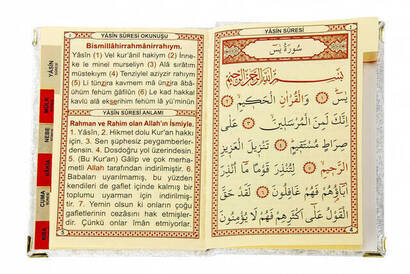 YÂSÎN SÛRESİ OKUNUŞU
Bismillâhirrahmânirrahıym.
Yâsîn (1) Vel kur'ânil hakiym (2) İnne-
ke le minel murseliyn (3) Alâ sırâtım
müstekıym (4) Tenziylel aziyzir rahıym
(5) Li tünzira kavmem mâ ünzira âbâ-
ühüm fehüm ğâfilûn (6) Le kad hakkal
kavlü alâ ekserihim fehüm lâ yü'minûn
YÂSÎN SÛRESİ ANLAMI
Rahman ve Rahim olan Allah'ın İsmiyle.
1. Yâsîn, 2. Hikmet dolu Kur'an hakkı
için, 3. Sen şüphesiz peygamberler-
densin. 4. Dosdoğru yol üzerindesin.
5. (Bu Kur'an) Gâlip ve çok merha-
metli Allah tarafından indirilmiştir. 6.
Babaları uyarılmamış, bu yüzden
kendileri de gaflet içinde kalmış bir
toplumu uyarman için indirilmiş-
tir. 7. Yemin olsun ki onların çoğu
gafletlerinin cezasını hak etmişler-
dir. Çünkü onlar îman etmiyorlar.
5
YÂSÎN
MÜLK
NEBE
CUMA
YÂSÎN SÛRESİ
سُورَةُ يٰسٓ
بِسْمِ اللّٰهِ الرَّحْمٰنِ الرَّحِيمِ
يٰسٓ ﴿١﴾ وَالْقُرْاٰنِ الْحَكِيمِ ﴿٢﴾
اِنَّكَ لَمِنَ الْمُرْسَلِينَ ﴿٣﴾ عَلٰى
صِرَاطٍ مُسْتَقِيمٍ ﴿٤﴾ تَنْزِيلَ الْعَزِيزِ
الرَّحِيمِ ﴿٥﴾ لِتُنْذِرَ قَوْمًا مَٓا اُنْذِرَ
اٰبَٓاؤُهُمْ فَهُمْ غَافِلُونَ ﴿٦﴾ لَقَدْ حَقَّ
الْقَوْلُ عَلٰٓى اَكْثَرِهِمْ فَهُمْ لَا يُؤْمِنُونَ
4